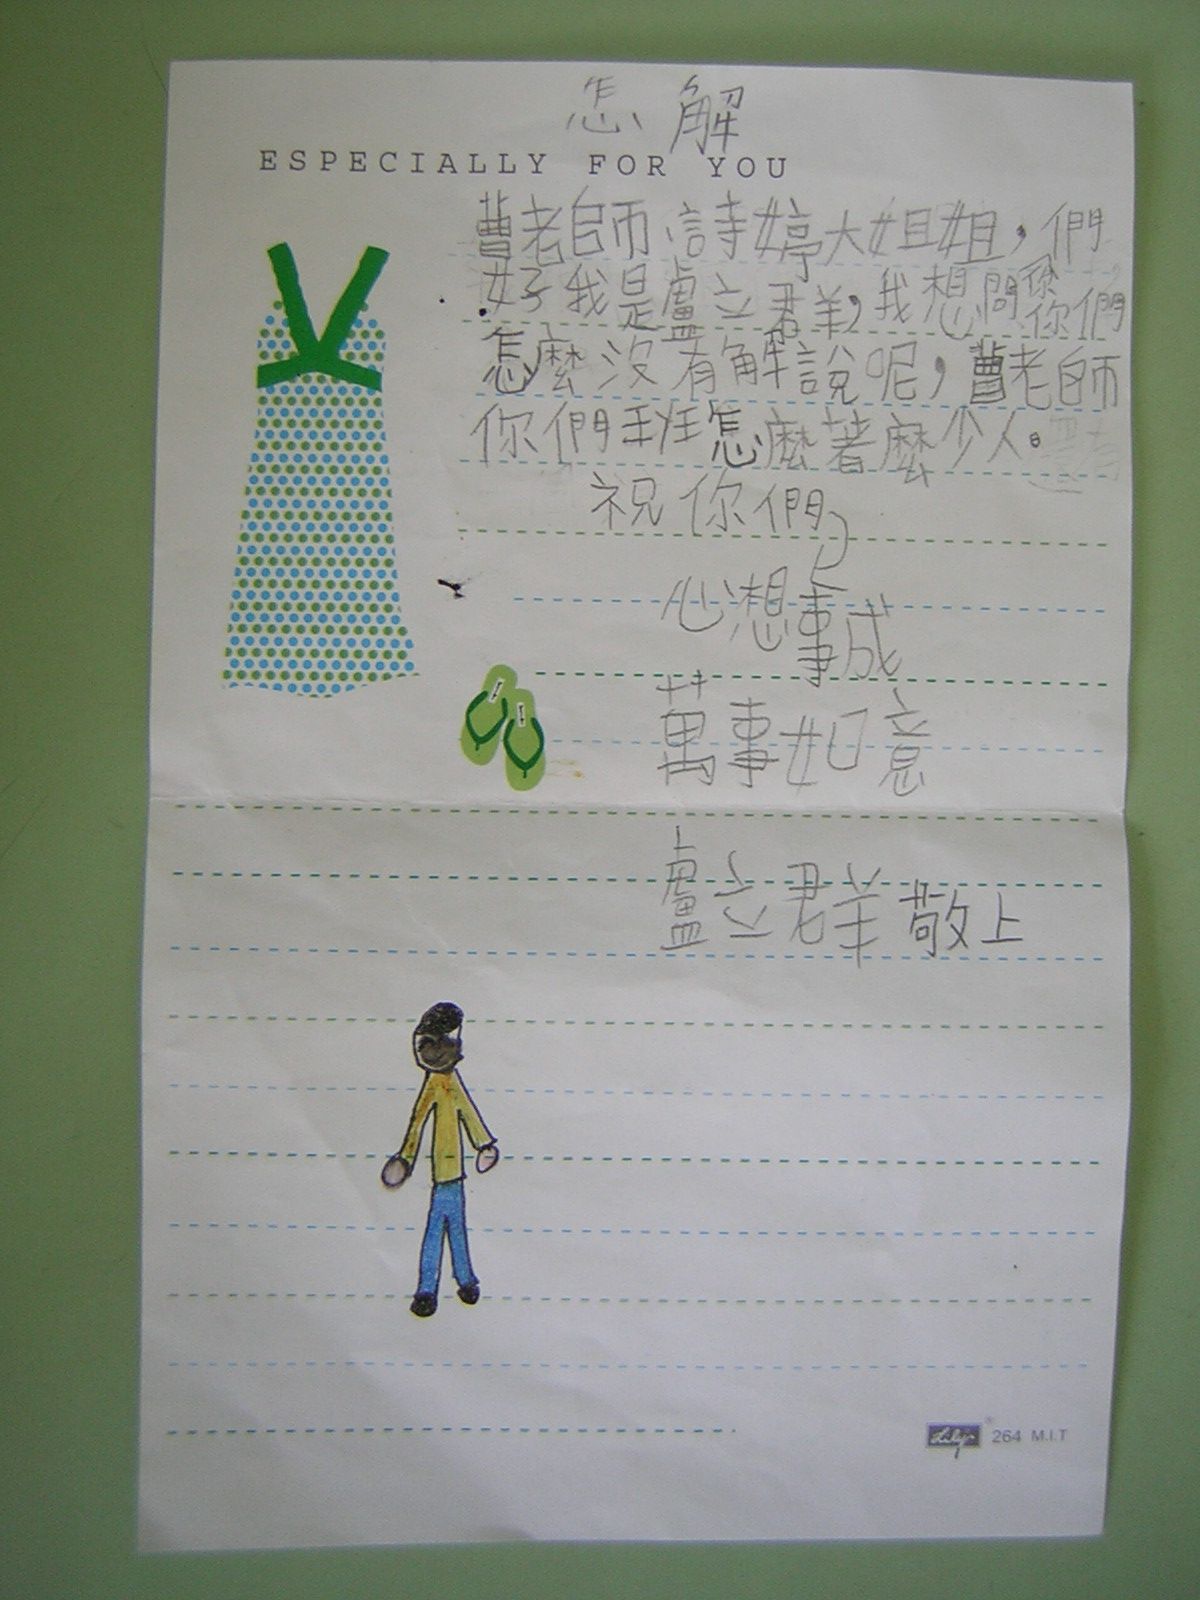 怎解
ESPECIALLY FOR YOU
曹老師詩婷大姐姐，們
好我是盧立群，我想問你你們
怎麼沒有解說呢，曹老師
你們班怎麼著麼少人。
祝你們
心想事成
萬事如意
盧立群敬上
Lily 264 M.I.T